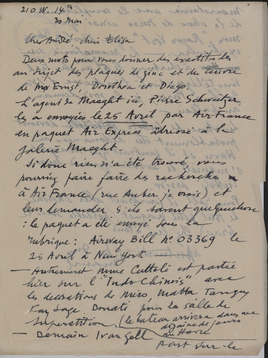 210 W. 14th
30 Mai
Cher André chère Elisa
Deux mots pour me donner des
au sujet des plaques de zinc et de cuivre
de Max Ernst, Dorothea et
L'agent de Maeght ici, Pierre
les a envoyées le 25 Avril par Air France
en paquet Air Express adressé à la
Galerie Maeght.
Si donc rien n'a été trouvé, vous
pourriez faire faire des recherches
à Air France (rue Auber je crois) et
leur demander s'ils savent quelque chose:
le paquet a été envoyé sous la
rubrique: Airway Bill No 03369 le
25 Avril à New York
— Autrement Mme Cuttoli est partie
hier sur l'"Indo Chinois" avec
les décorations de Miro, Matta Tanguy
Kay Sage Donati pour la salle de
Superstition (le bateau arrivera dans une
dizaine de jours
au Havre
— Demain
part sur le